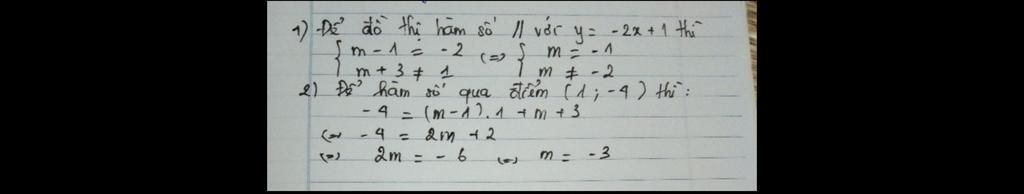 1) Để đồ thị hàm số // với y = -2x + 1 thì
{ m - 1 = -2 (=) { m = -1
{ m + 3 ≠ 1 { m ≠ -2
2) Để hàm số qua điểm (1 ; -4) thì:
-4 = (m-1).1 + m + 3
(=) -4 = 2m + 2
(=) 2m = -6 (=) m = -3